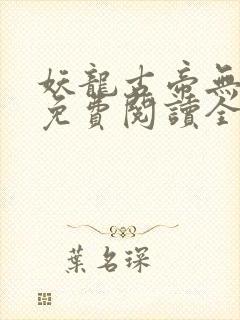 妖龍古帝無
免費閱讀全
葉名琛